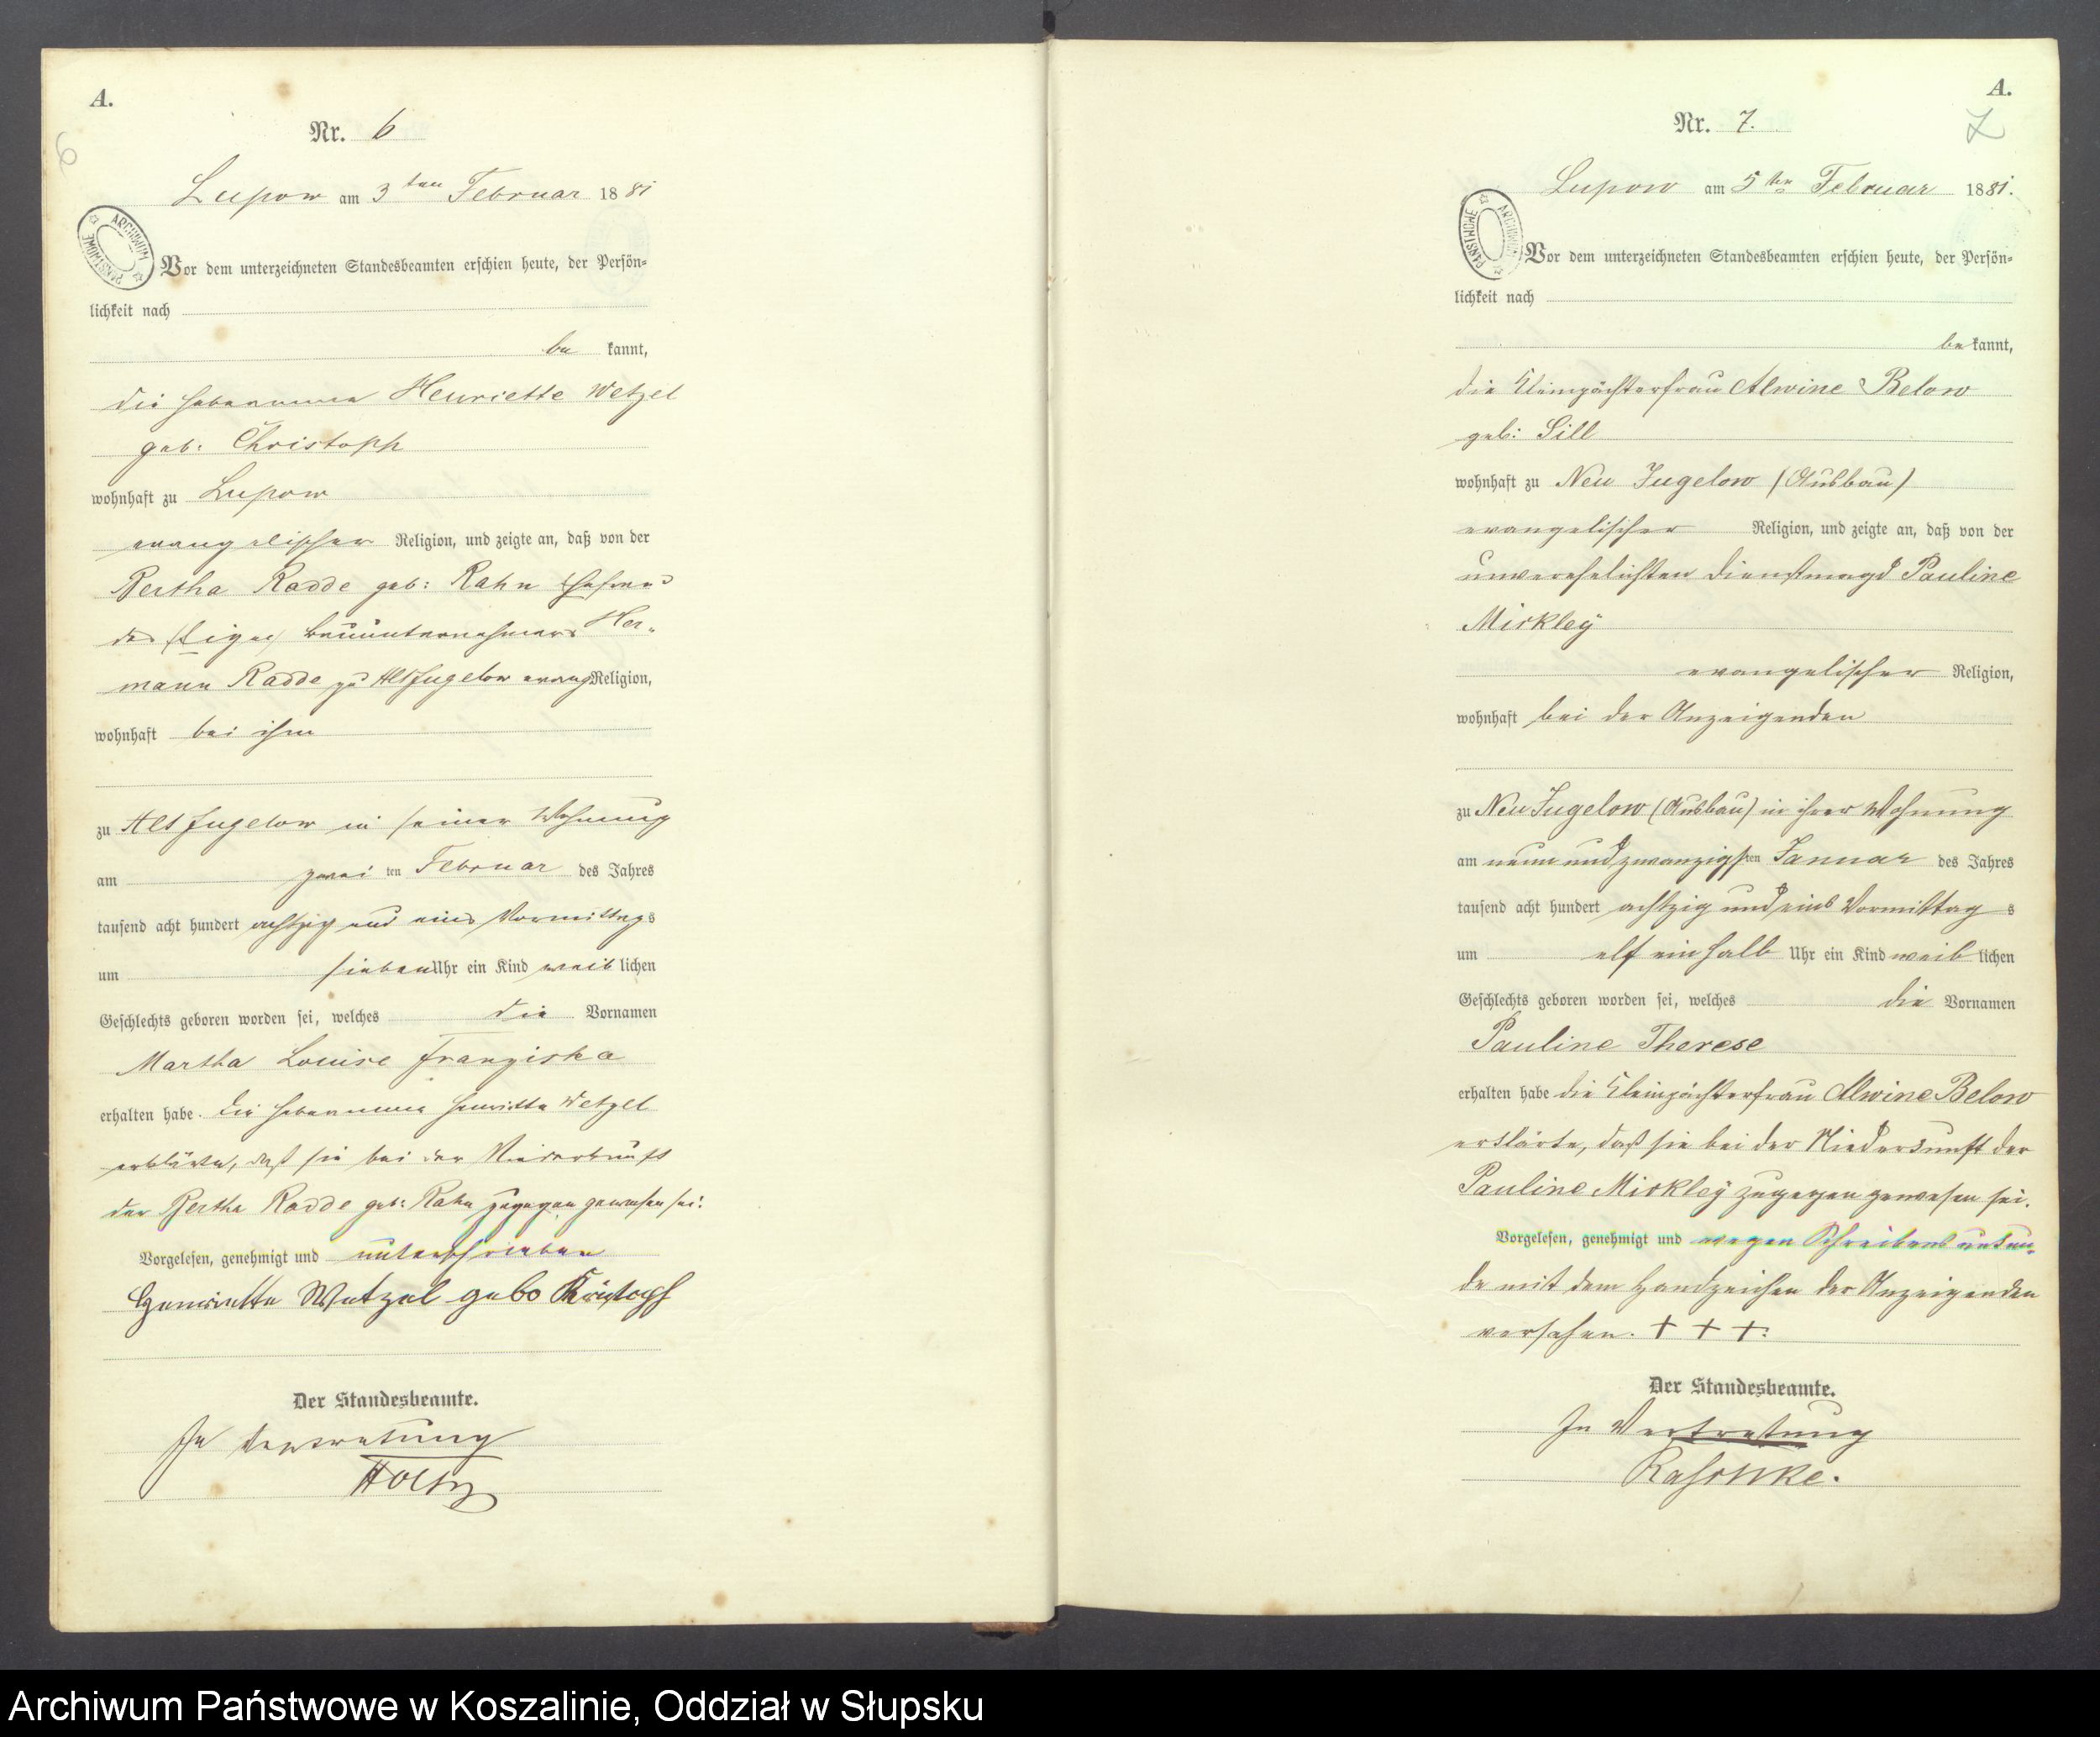 A.
Nr. 6
6
Lupow am 3ten Februar 1881
ARCHIWUM PAŃSTWOWE
Vor dem unterzeichneten Standesbeamten erschien heute, der Persön=
lichkeit nach
be kannt,
die Hebamme Henriette Wetzel
geb: Christoph
wohnhaft zu Lupow
evangelischer Religion, und zeigte an, daß von der
Bertha Radde geb: Rahn Ehefrau
des Bauunternehmers Her=
mann Radde zu Alt Jugelow evang Religion,
wohnhaft bei ihm
zu Alt Jugelow in seiner Wohnung
am zwei ten Februar des Jahres
tausend acht hundert achtzig und eins Vormittags
um sieben Uhr ein Kind weib lichen
Geschlechts geboren worden sei, welches die Vornamen
Martha Louise Franziska
erhalten habe. Die Hebamme Henriette Wetzel
erklärte, daß sie bei der Niederkunft
der Bertha Radde geb: Rahn zugegen gewesen sei.
Vorgelesen, genehmigt und unterschrieben
Henriette Wetzel gebo Kristoph
Der Standesbeamte.
In Vertretung
Holtz
A.
Nr. 7.
7
Lupow am 5ten Februar 1881.
ARCHIWUM PAŃSTWOWE
Vor dem unterzeichneten Standesbeamten erschien heute, der Persön=
lichkeit nach
be kannt,
die Kleinpächterfrau Alwine Below
geb: Sill
wohnhaft zu Neu Jugelow (Ausbau)
evangelischer Religion, und zeigte an, daß von der
unverehelichten Dienstmagd Pauline
Mickley
evangelischer Religion,
wohnhaft bei der Anzeigenden
zu Neu Jugelow (Ausbau) in ihrer Wohnung
am neun und zwanzigsten Januar des Jahres
tausend acht hundert achtzig und eins Vormittag s
um elf ein halb Uhr ein Kind weib lichen
Geschlechts geboren worden sei, welches die Vornamen
Pauline Therese
erhalten habe die Kleinpächterfrau Alwine Below
erklärte, daß sie bei der Niederkunft der
Pauline Mickley zugegen gewesen sei.
Vorgelesen, genehmigt und wegen Schreibens unkun=
de mit dem Handzeichen der Anzeigenden
versehen. + + +.
Der Standesbeamte.
In Vertretung
Raschke.
Archiwum Państwowe w Koszalinie, Oddział w Słupsku